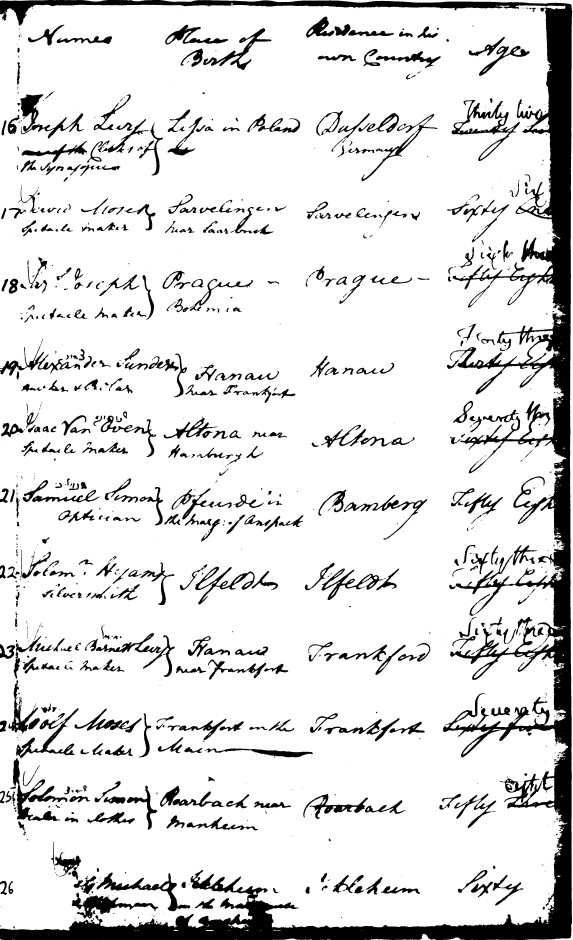 Names Place of Birth Residence in his own Country Age
16 Joseph Levy Lissa in Poland Dusseldorf Thirty two
Clerk of Germany
the Synagogue
17 Moses Sarvelingen Sarvelingen Sixty Six
Spectacle maker near Saarbruck
18 Joseph Prague – Prague – Sixty three Fifty Eight
Spectacle Maker Bohemia
19 Alexander Sanders Hanau Hanau Forty three Thirty Eight
near Frankfort
20 Isaac Van Oven Altona near Altona Seventy Sixty Eight
Spectacle Maker Hamburgh
21 Samuel Simon in Bamberg Fifty Eight
Optician the Marg: of Anspach
22 Solomn. Hyams Ilfeldt Ilfeldt Sixty three Fifty Eight
Silversmith
23 Michael Barnett Levy Hanau Frankford Sixty three Fifty Eight
Spectacle Maker near Frankfort
24 Wolf Moses Frankfort on the Frankfort Seventy Sixty five
Spectacle Maker Main
25 Solomon Simon Roarbach near Roarbach Fifty eight
Dealer in clothes Manheim
26 Michael Sixty